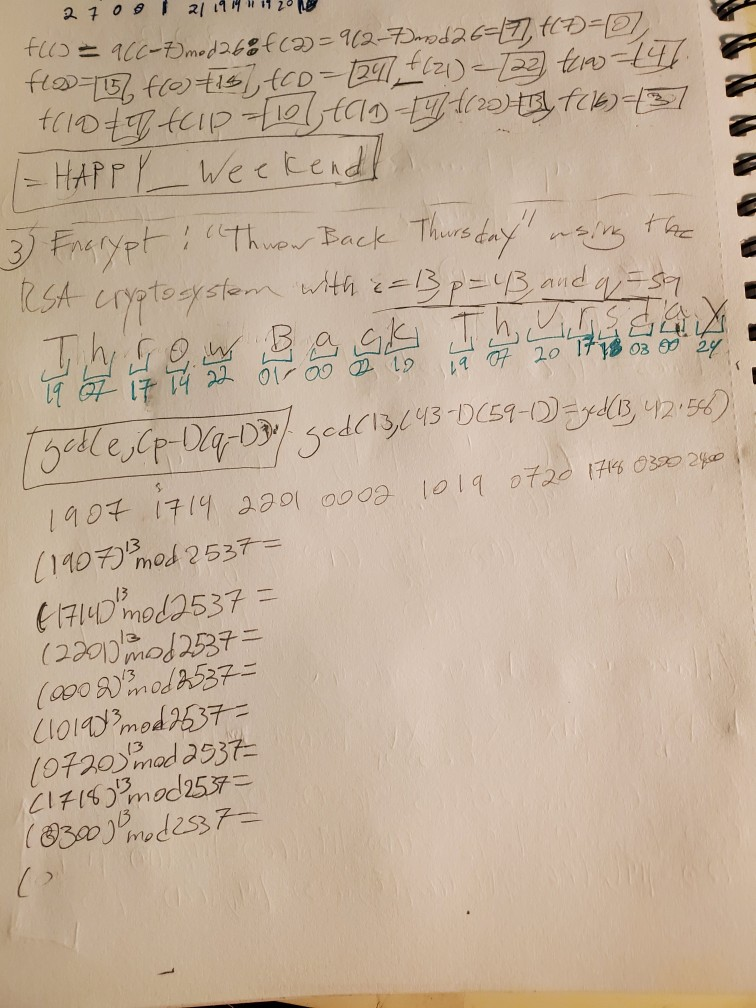 2 7 0 0 1 21 19 19 11 19 20 16
f(c) = 9(c-7)mod26: f(2) = 9(2-7)mod26=7, f(7)=0,
f(0)=15, f(0)=15, f(1) = 24, f(21) = 22, f(19)=4,
f(19)=4, f(11) = 10, f(19)=4, f(20)=13, f(16)=3
= HAPPY_Weekend
3) Encrypt: "Throw Back Thursday" using the
RSA cryptosystem with e=13, p=43, and q=59
T h r o w B a c k T h u r s d a y
19 07 17 14 22 01 00 02 10 19 07 20 17 18 03 00 24
gcd(e,(p-1)(q-1)): gcd(13,(43-1)(59-1))=gcd(13, 42·58)
1907 1714 2201 0002 1019 0720 1718 0300 2400
(1907)^13 mod 2537 =
(1714)^13 mod 2537 =
(2201)^13 mod 2537 =
(0002)^13 mod 2537 =
(1019)^13 mod 2537 =
(0720)^13 mod 2537 =
(1718)^13 mod 2537 =
(0300)^13 mod 2537 =
( )